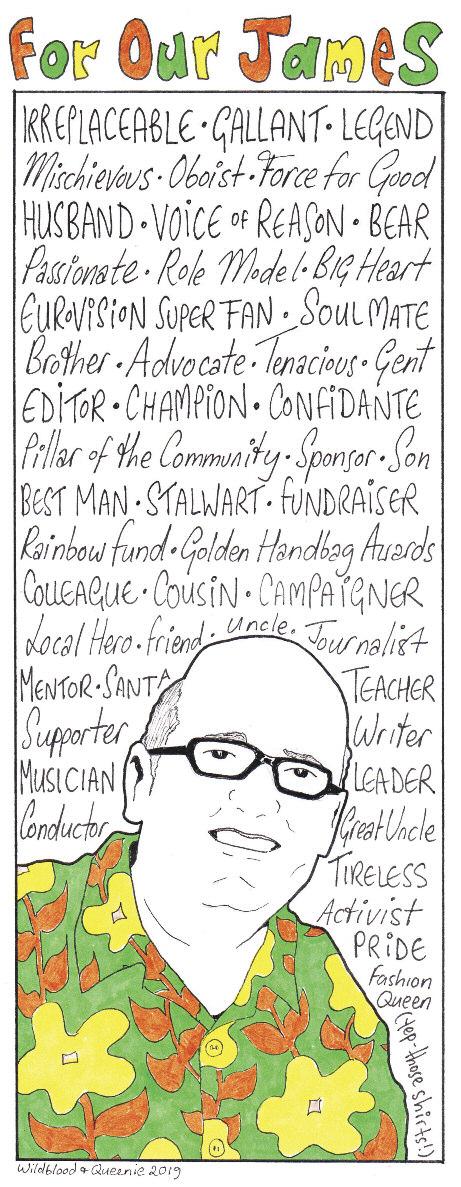 For Our James
IRREPLACEABLE · GALLANT · LEGEND
Mischievous · Oboist · Force for Good
HUSBAND · VOICE OF REASON · BEAR
Passionate · Role Model · BIG Heart
EUROVISION SUPER FAN · SOUL MATE
Brother · Advocate · Tenacious · Gent
EDITOR · CHAMPION · CONFIDANTE
Pillar of the Community · Sponsor · Son
BEST MAN · STALWART · FUNDRAISER
Rainbow fund · Golden Handbag Awards
COLLEAGUE · COUSIN · CAMPAIGNER
Local Hero · friend · uncle · Journalist
MENTOR · SANTA
TEACHER
Supporter
Writer
MUSICIAN
LEADER
Conductor
Great Uncle
TIRELESS
Activist
PRIDE
Fashion
Queen
(yep-those shirts!)
Wildblood & Queenie 2019